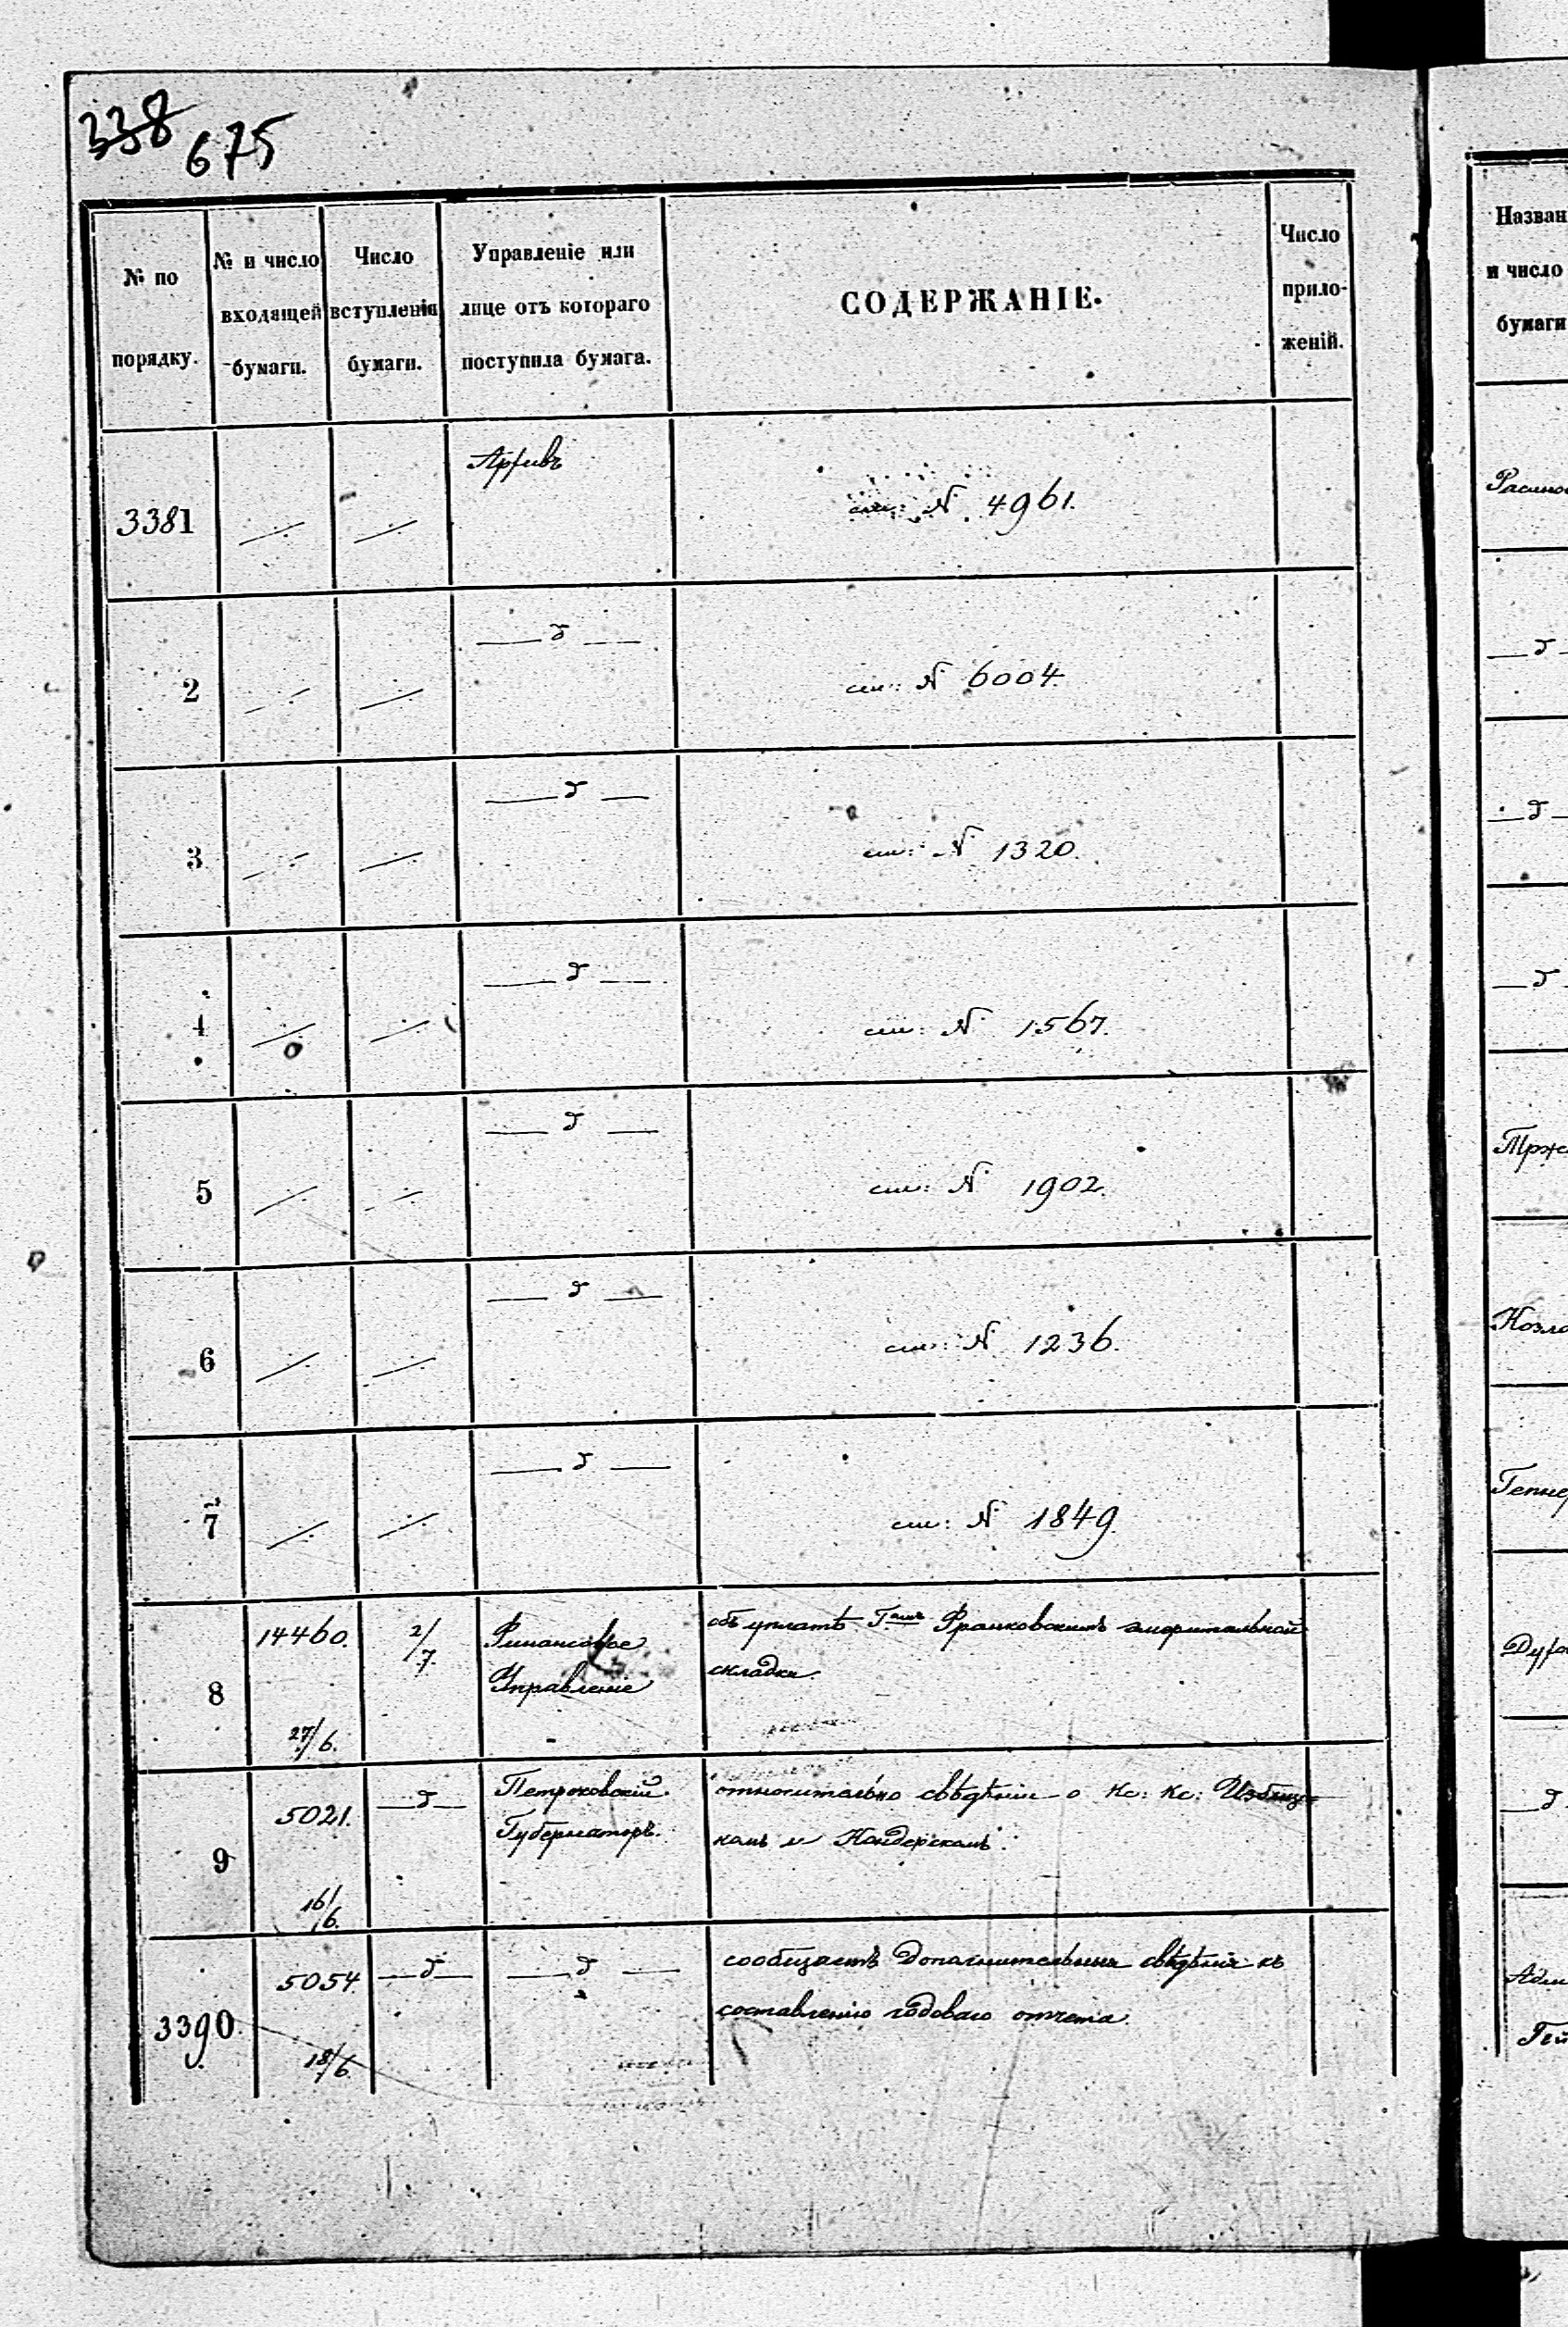 338 675
№ по порядку.
№ и число входящей бумаги.
Число вступленія бумаги.
Управленіе или лице отъ котораго поступила бумага.
СОДЕРЖАНІЕ.
Число приложеній.
3381 Архивъ см: № 4961.
2 д см: № 6004.
3 д см: № 1320.
4 д см: № 1567.
5 д см: № 1902.
6 д см: № 1236.
7 д см: № 1849.
8 14460. 27/6. 2/7. Финансовое объ уплатѣ Франковскимъ эмеритальной
Управленіе складки.
9 5021. 16/6. д Петроковскій относительно свѣдѣнія о Кс: Кс:
Губернаторъ. и
3390. 5054. 18/6. д д сообщаетъ дополнительныя свѣдѣнія къ
составленію годоваго отчета.
Назван
и число
бумаги
д
д
д
Трже
Козло
Д
д